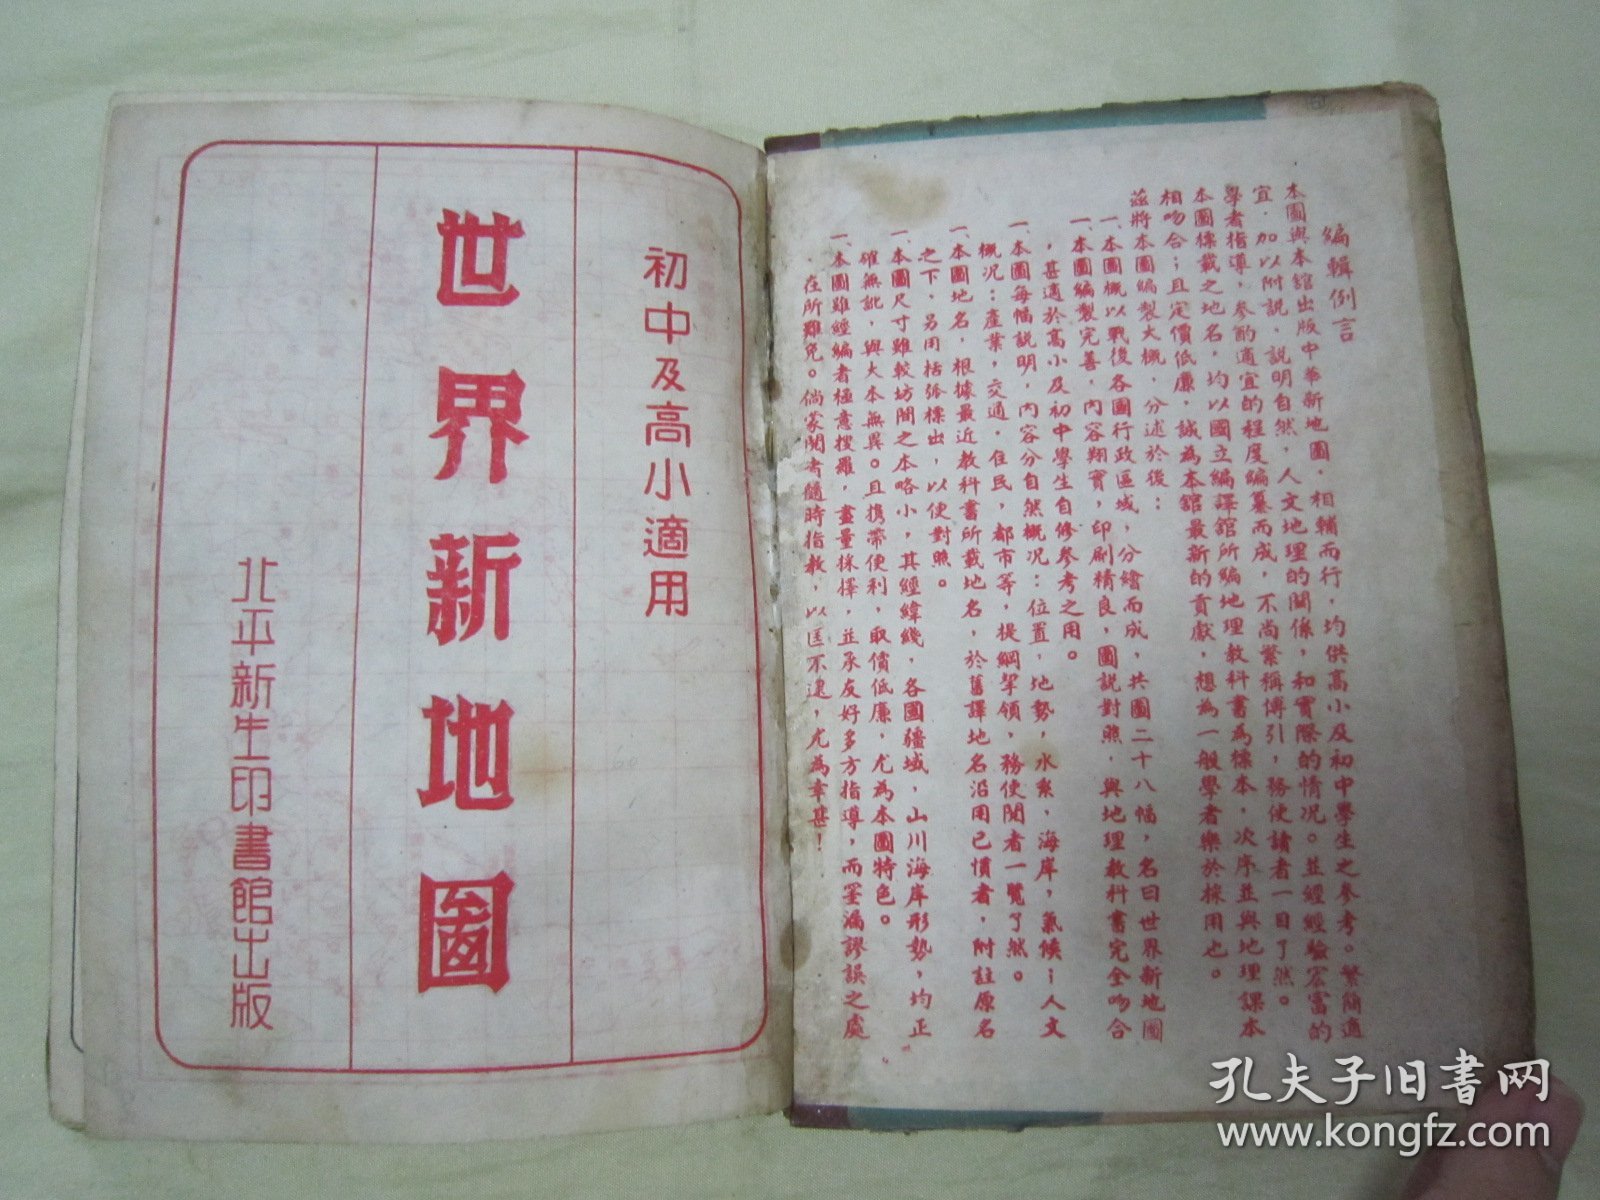 編輯例言
本圖與本舘出版中華新地圖，相輔而行，均供高小及初中學生之參考。繁簡適
宜．加以附説，説明自然，人文地理的關係，和實際的情況。並經經驗宏富的
學者指導，參酌適宜的程度編纂而成，不尚繁稱博引，務使讀者一目了然。
本圖標載之地名，均以國立編譯舘所編地理教科書為標本，次序並與地理課本
相吻合；且定價低廉，誠為本舘最新的貢獻，想為一般學者樂於採用也。
茲將本圖編製大概，分述於後：
一、本圖概以戰後各國行政區域，分繪而成，共圖二十八幅，名曰世界新地圖
一、本圖編製完善，內容翔實，印刷精良，圖説對照，與地理教科書完全吻合
，甚適於高小及初中學生自修參考之用。
一、本圖每幅説明，內容分自然概况：位置，地勢，水系，海岸，氣候；人文
概况：產業，交通，住民，都市等，提綱挈領，務使閱者一覽了然。
一、本圖地名，根據最近教科書所載地名，於舊譯地名沿用已慣者，附註原名
之下，另用括弧標出，以便對照。
一、本圖尺寸雖較坊間之本略小，其經緯綫，各國疆域，山川海岸形勢，均正
確無訛，與大本無異。且携帶便利，取價低廉，尤為本圖特色。
一、本圖雖經編者極意搜羅，盡量採擇，並承友好多方指導，而罣漏謬誤之處
，在所難免。倘蒙閱者隨時指教，以匡不逮，尤為幸甚！
初中及高小適用
世界新地圖
北平新生印書館出版
孔夫子旧書网
www.kongfz.com